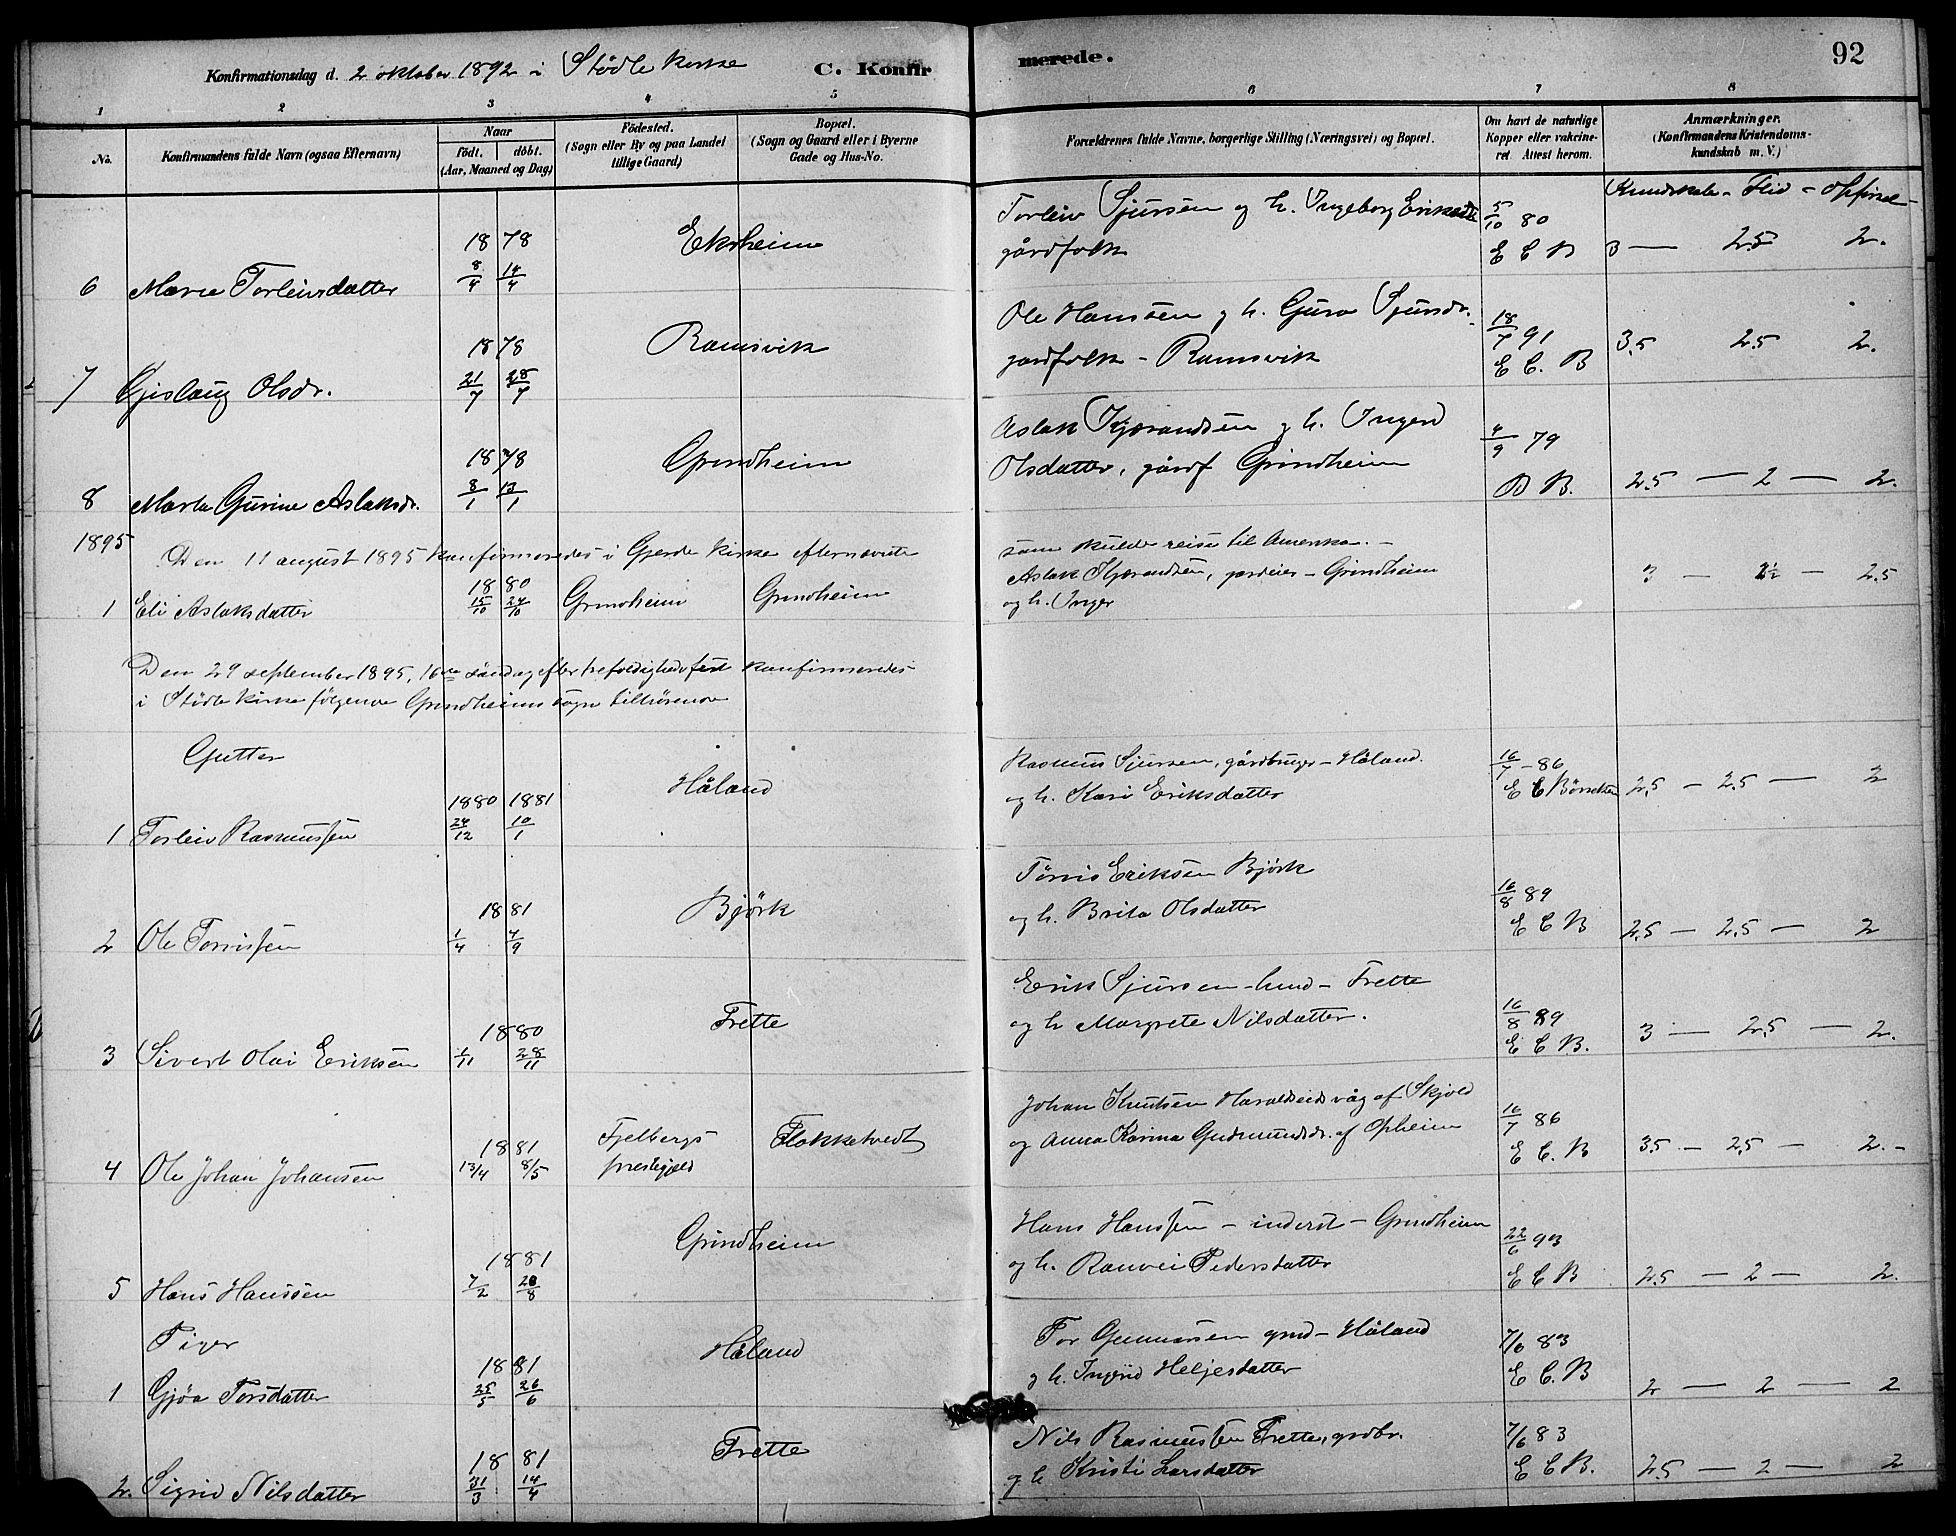 Konfirmationsdag d. 2 oktober 1892 i Stödle kirke
C. Konfirmerede.
92
1 2 3 4 5 6 7 8
No.
Konfirmandens fulde Navn (ogsaa Efternavn)
Naar
födt. döbt.
(Aar, Maaned og Dag)
Födested.
(Sogn eller By og paa Landet
tillige Gaard)
Bopæl.
(Sogn og Gaard eller i Byerne
Gade og Hus-No.
Forældrenes fulde Navne, borgerlige Stilling (Næringsvei) og Bopæl.
Om havt de naturlige
Kopper eller vakcine-
ret Attest herom.
Anmærkninger.
(Konfirmandens Kristendoms-
kundskab m. V.)
Kundskab - Flid - Opførsel -
Torleiv Sjursen og h. Ingeborg Eriksdtr
gårdfolk
5/10 80
E C B
3 — 2.5 2.
1878
Ekrheim
6 Marie Torleivsdatter 8/4 14/4
Ole Hanssen g h. Guro Sjursdr.
gardfolk - Ramsvik
18/7 91
E C. B
3.5 2.5 2.
1878
Ramsvik
7 Gjislaug Olsdr. 21/7 28/7
Aslak Kjærandsen g h. Ingerd
Olsdatter, gårdf Grindheim
4/9 79
D B.
2.5 — 2 — 2.
1878
Grindheim
8 Marta Gurine Aslaksdr. 8/1 13/1
1895
Den 11 august 1895 konfirmeredes i Gjerde kirke efternævnte
som skulde reise til Amerika. -
1 Eli Aslaksdatter 1880 15/10 24/10 Grindheim Grindheim
Aslak Kjærandsen, gardeier - Grindheim
og h. Inger
3 — 2½ — 2.5
Den 29 september 1895, 16de söndag efter trefoldighedsfest konfirmeredes
i Stödle kirke følgende Grindheims sogn tilhörende
Gutter
1 Torleiv Rasmussen 1880 24/12 1881 10/1 Håland
Rasmus Sjursen, gårdbruger - Håland.
og h. Kari Eriksdatter
16/7 - 86
E C Börretzen
2.5 — 2.5 — 2
2 Ole Tørrissen 1881 1/4 4/9 Bjørk
Tørris Eriksen Bjørk
og h. Brita Olsdatter
16/8 89
E C B
2.5 — 2.5 — 2
3 Sivert Olai Eriksen 1880 1/11 28/11 Frette
Erik Sjursen - husd - Frette
og h Margrete Nilsdatter.
16/8 89
E C B.
3 — 2.5 — 2.
4 Ole Johan Johansen 1881 13/4 8/5 Fjelbergs
prestegjeld Flokketvedt
Johan Knutsen Haraldseidsvåg af Skjold
og Anna Karina Gudmundsdr. af Opheim
16/7 86
E C. B
3.5 — 2.5 — 2. -
5 Hans Hanssen 1881 7/2 20/8 Grindheim
Hans Hanssen - inderst - Grindheim
og h. Ranvei Pedersdatter
22/6 93
E C B
2.5 — 2 — 2.
Piger
1 Gjøa Torsdatter 1881 25/5 26/6 Håland
Tor Gunnarsen gmd - Håland
g h. Ingrid Heljesdatter
7/6 83
E C. B
2 — 2 — 2
2. Sigrid Nilsdatter 1881 31/3 14/4 Frette
Nils Rasmussen Frette, grdbr.
g h Kristi Larsdatter
7/6 83
E C B.
2.5 — 2 — 2